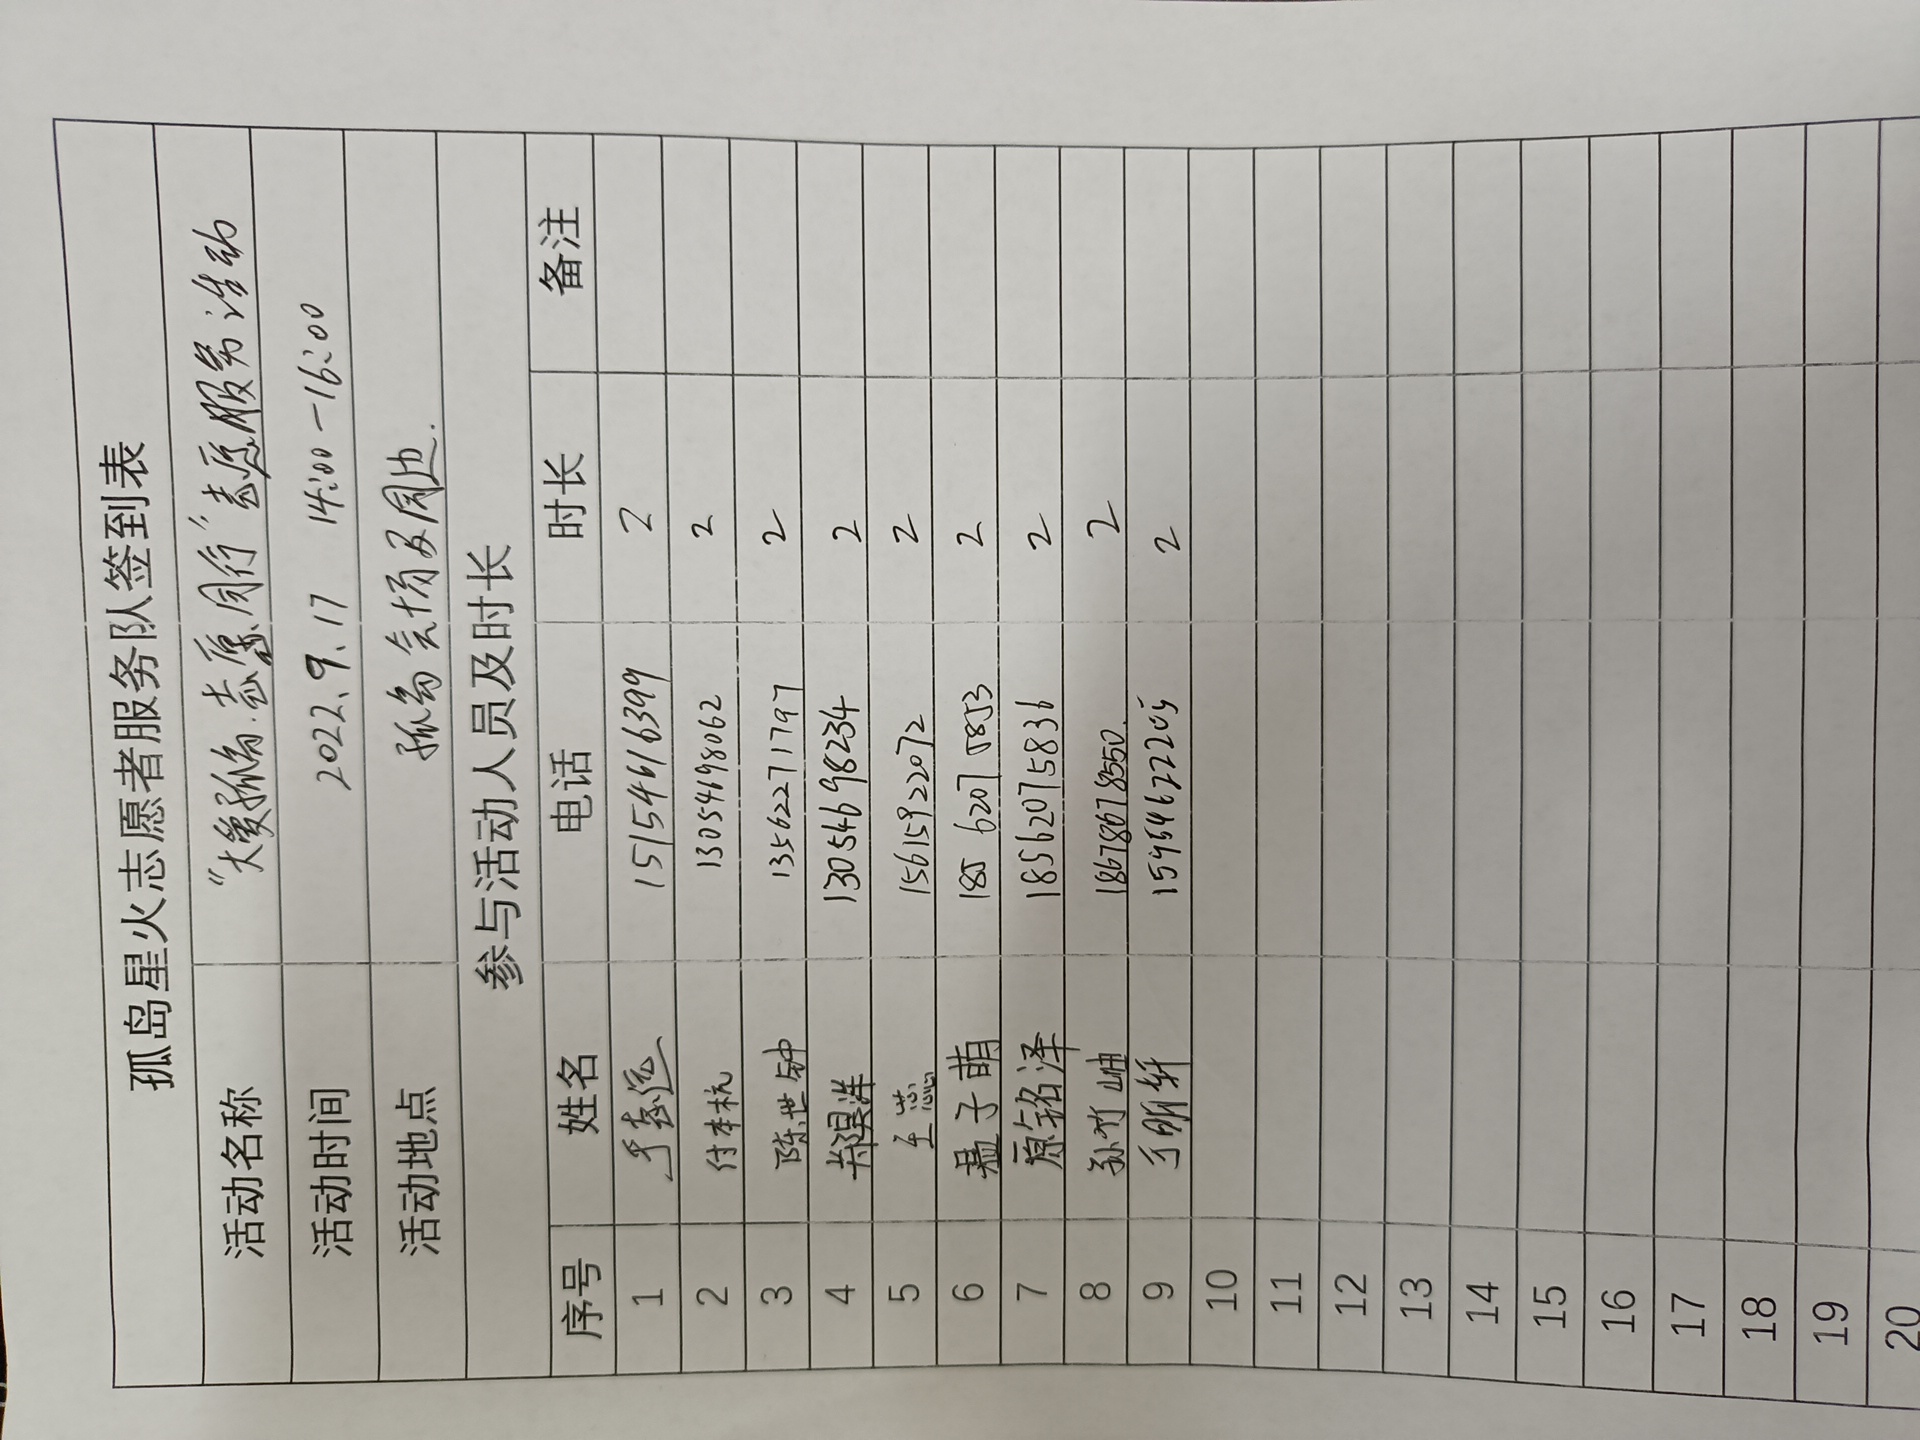 孤岛星火志愿者服务队签到表
活动名称 “大爱孤岛·志愿同行”志愿服务活动
活动时间 2022.9.17 14:00-16:00
活动地点 孤岛会场及周边.
参与活动人员及时长
序号 姓名 电话 时长 备注
1 15154616399 2
2 付本杭 13054698062 2
3 陈世钟 13562271797 2
4 13054698234 2
5 15615922072 2
6 聂子萌 185 6207 5853 2
7 原铭泽 18562075836 2
8 孙竹岫 18678678550. 2
9 于明轩 15954622205 2
10
11
12
13
14
15
16
17
18
19
20